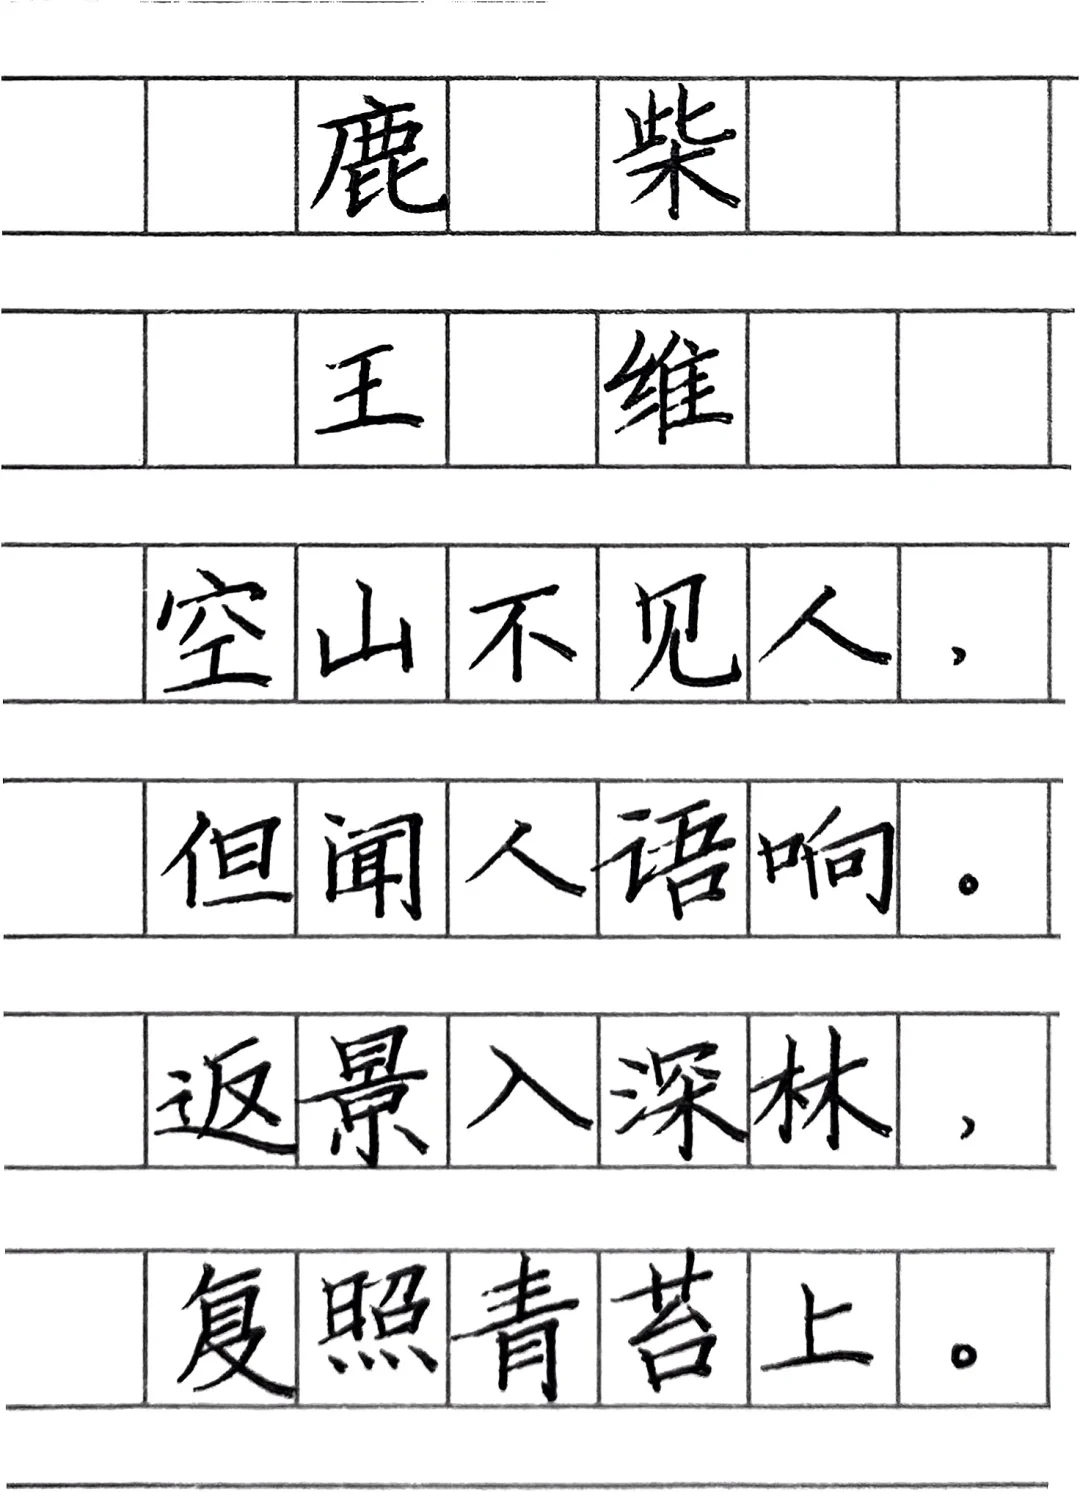 鹿 柴
王 维
空山不见人，
但闻人语响。
返景入深林，
复照青苔上。